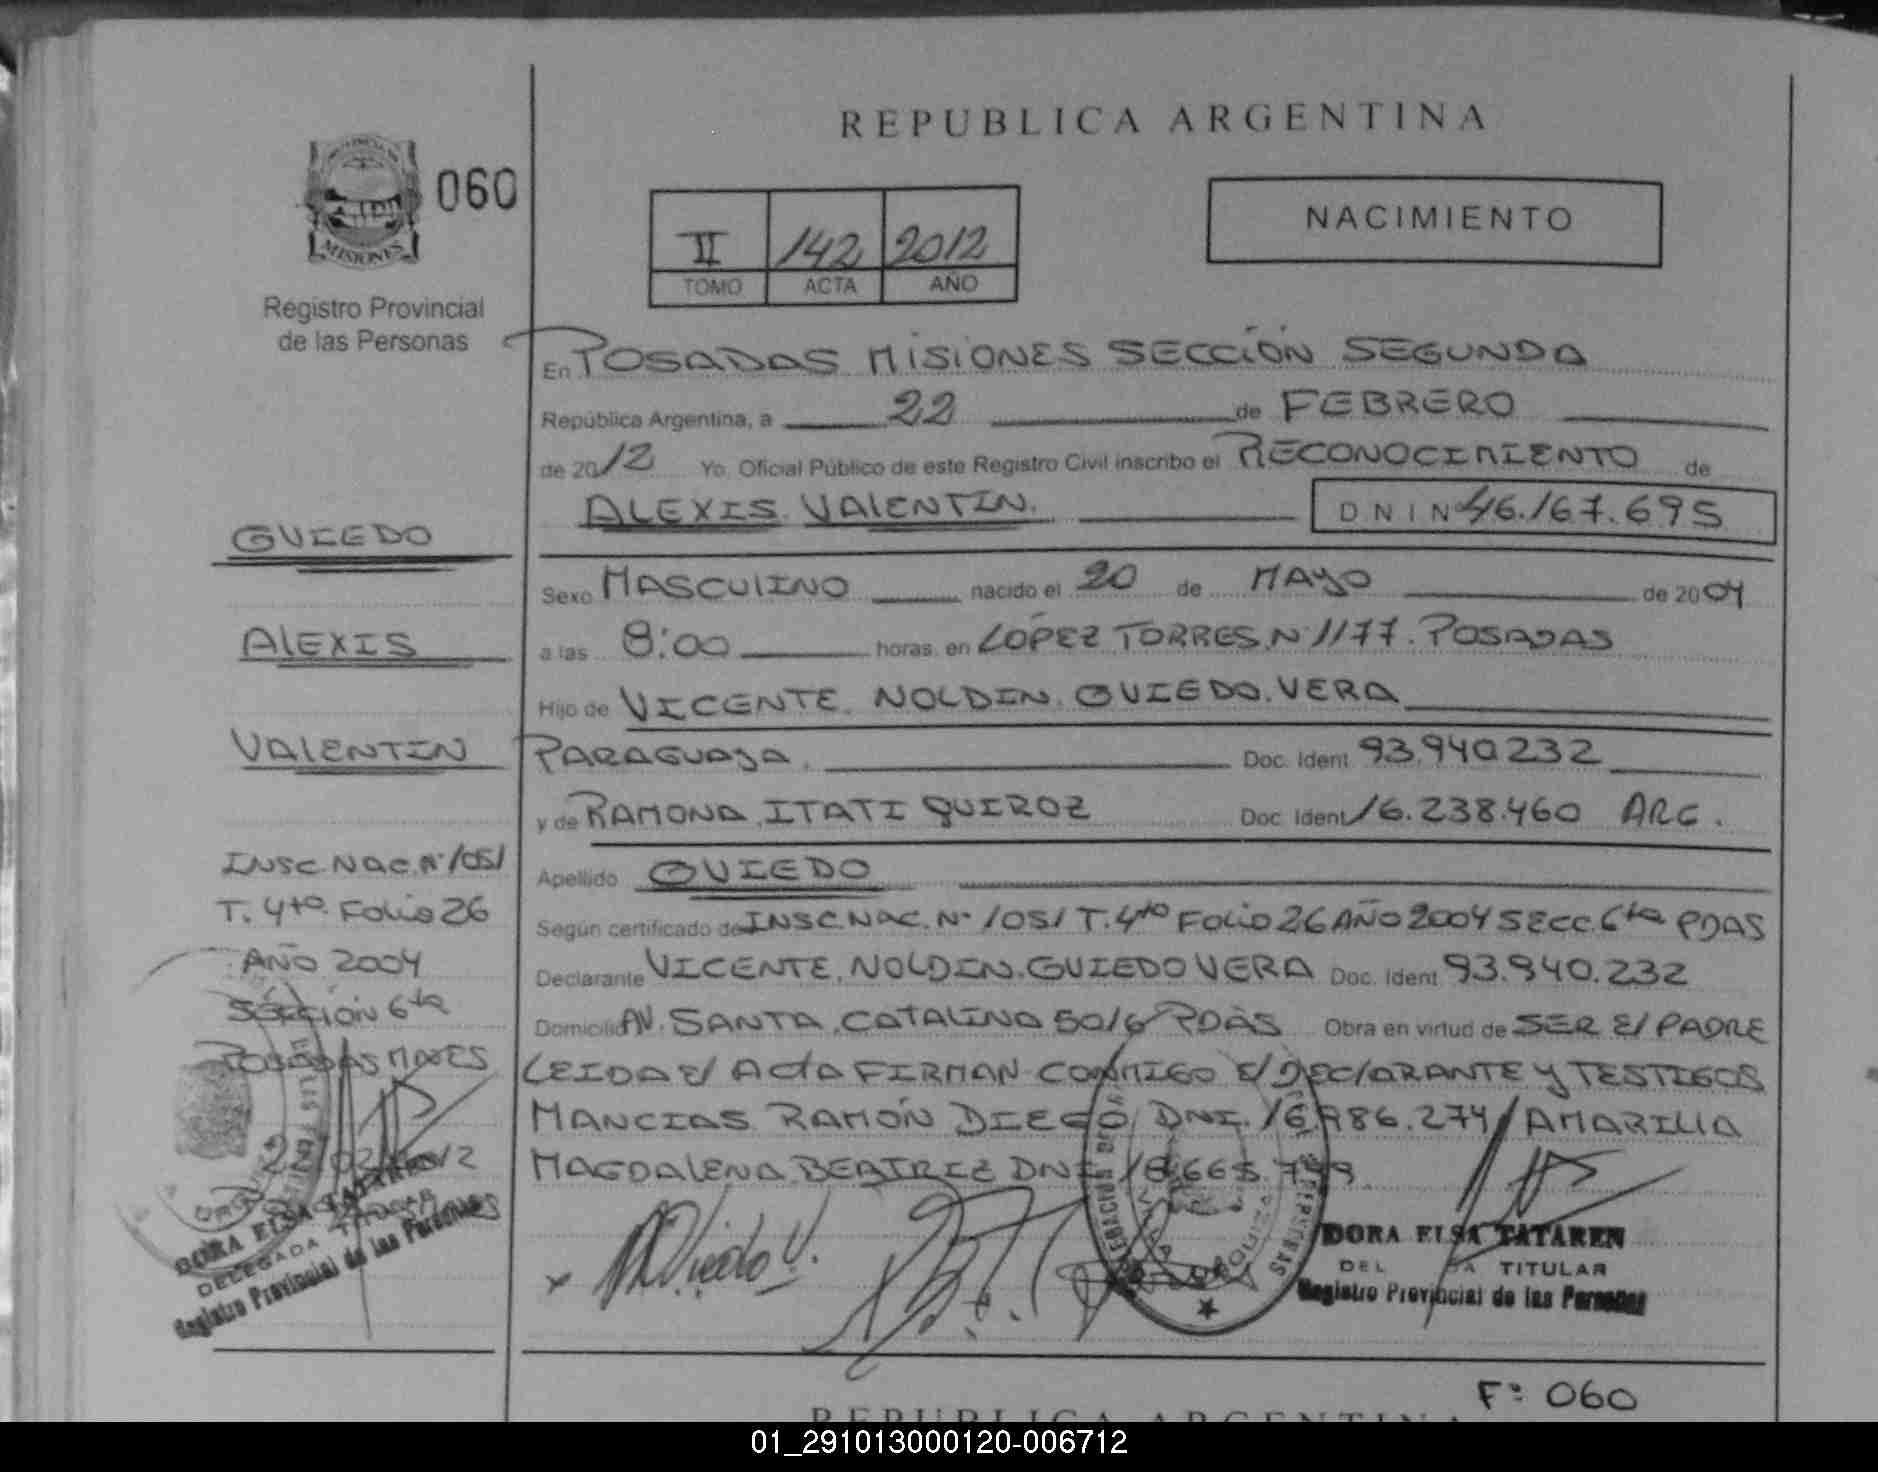 REPUBLICA ARGENTINA
MISIONES
060
Registro Provincial
de las Personas
II 142 2012
TOMO ACTA AÑO
NACIMIENTO
En POSADAS MISIONES SECCIÓN SEGUNDA
República Argentina, a 22 de FEBRERO
de 2012 Yo, Oficial Público de este Registro Civil inscribo el RECONOCIMIENTO de
ALEXIS VALENTIN. D N I N 46.167.695
Sexo MASCULINO nacido el 20 de MAYO de 2004
a las 8:00 horas, en LOPEZ TORRES N 1177. POSADAS
Hijo de VICENTE NOLDIN OVIEDO VERA
PARAGUAYA. Doc. Ident 93.940232
y de RAMONA ITATI QUIROZ Doc. Ident 16.238.460 ARG.
Apellido OVIEDO
Según certificado de INSC NAC. Nº 1051 T. 4to FOLIO 26 AÑO 2004 SECC. 6ta PDAS
Declarante VICENTE NOLDIN OVIEDO VERA Doc. Ident 93.940.232
Domicilio AV. SANTA CATALINA 5016 PDAS Obra en virtud de SER El PADRE
LEIDA El ACTA FIRMAN CONMIGO El DEClARANTE Y TESTIGOS
MANCIAS RAMÓN DIEGO DNI. 16.986.274 / AMARILLA
MAGDALENA BEATRIZ DNI
OVIEDO
ALEXIS
VALENTIN
INSC NAC. Nº 1051
T. 4to. FOLIO 26
AÑO 2004
SECCIÓN 6ta
POSADAS MNES
DORA ELSA TATAREN
DELEGADA TITULAR
Registro Provincial de las Personas
Oviedo V.
DORA ELSA TATAREN
TITULAR
Registro Provincial de las Personas
Fº 060
REPUBLICA ARGENTINA
01_291013000120-006712